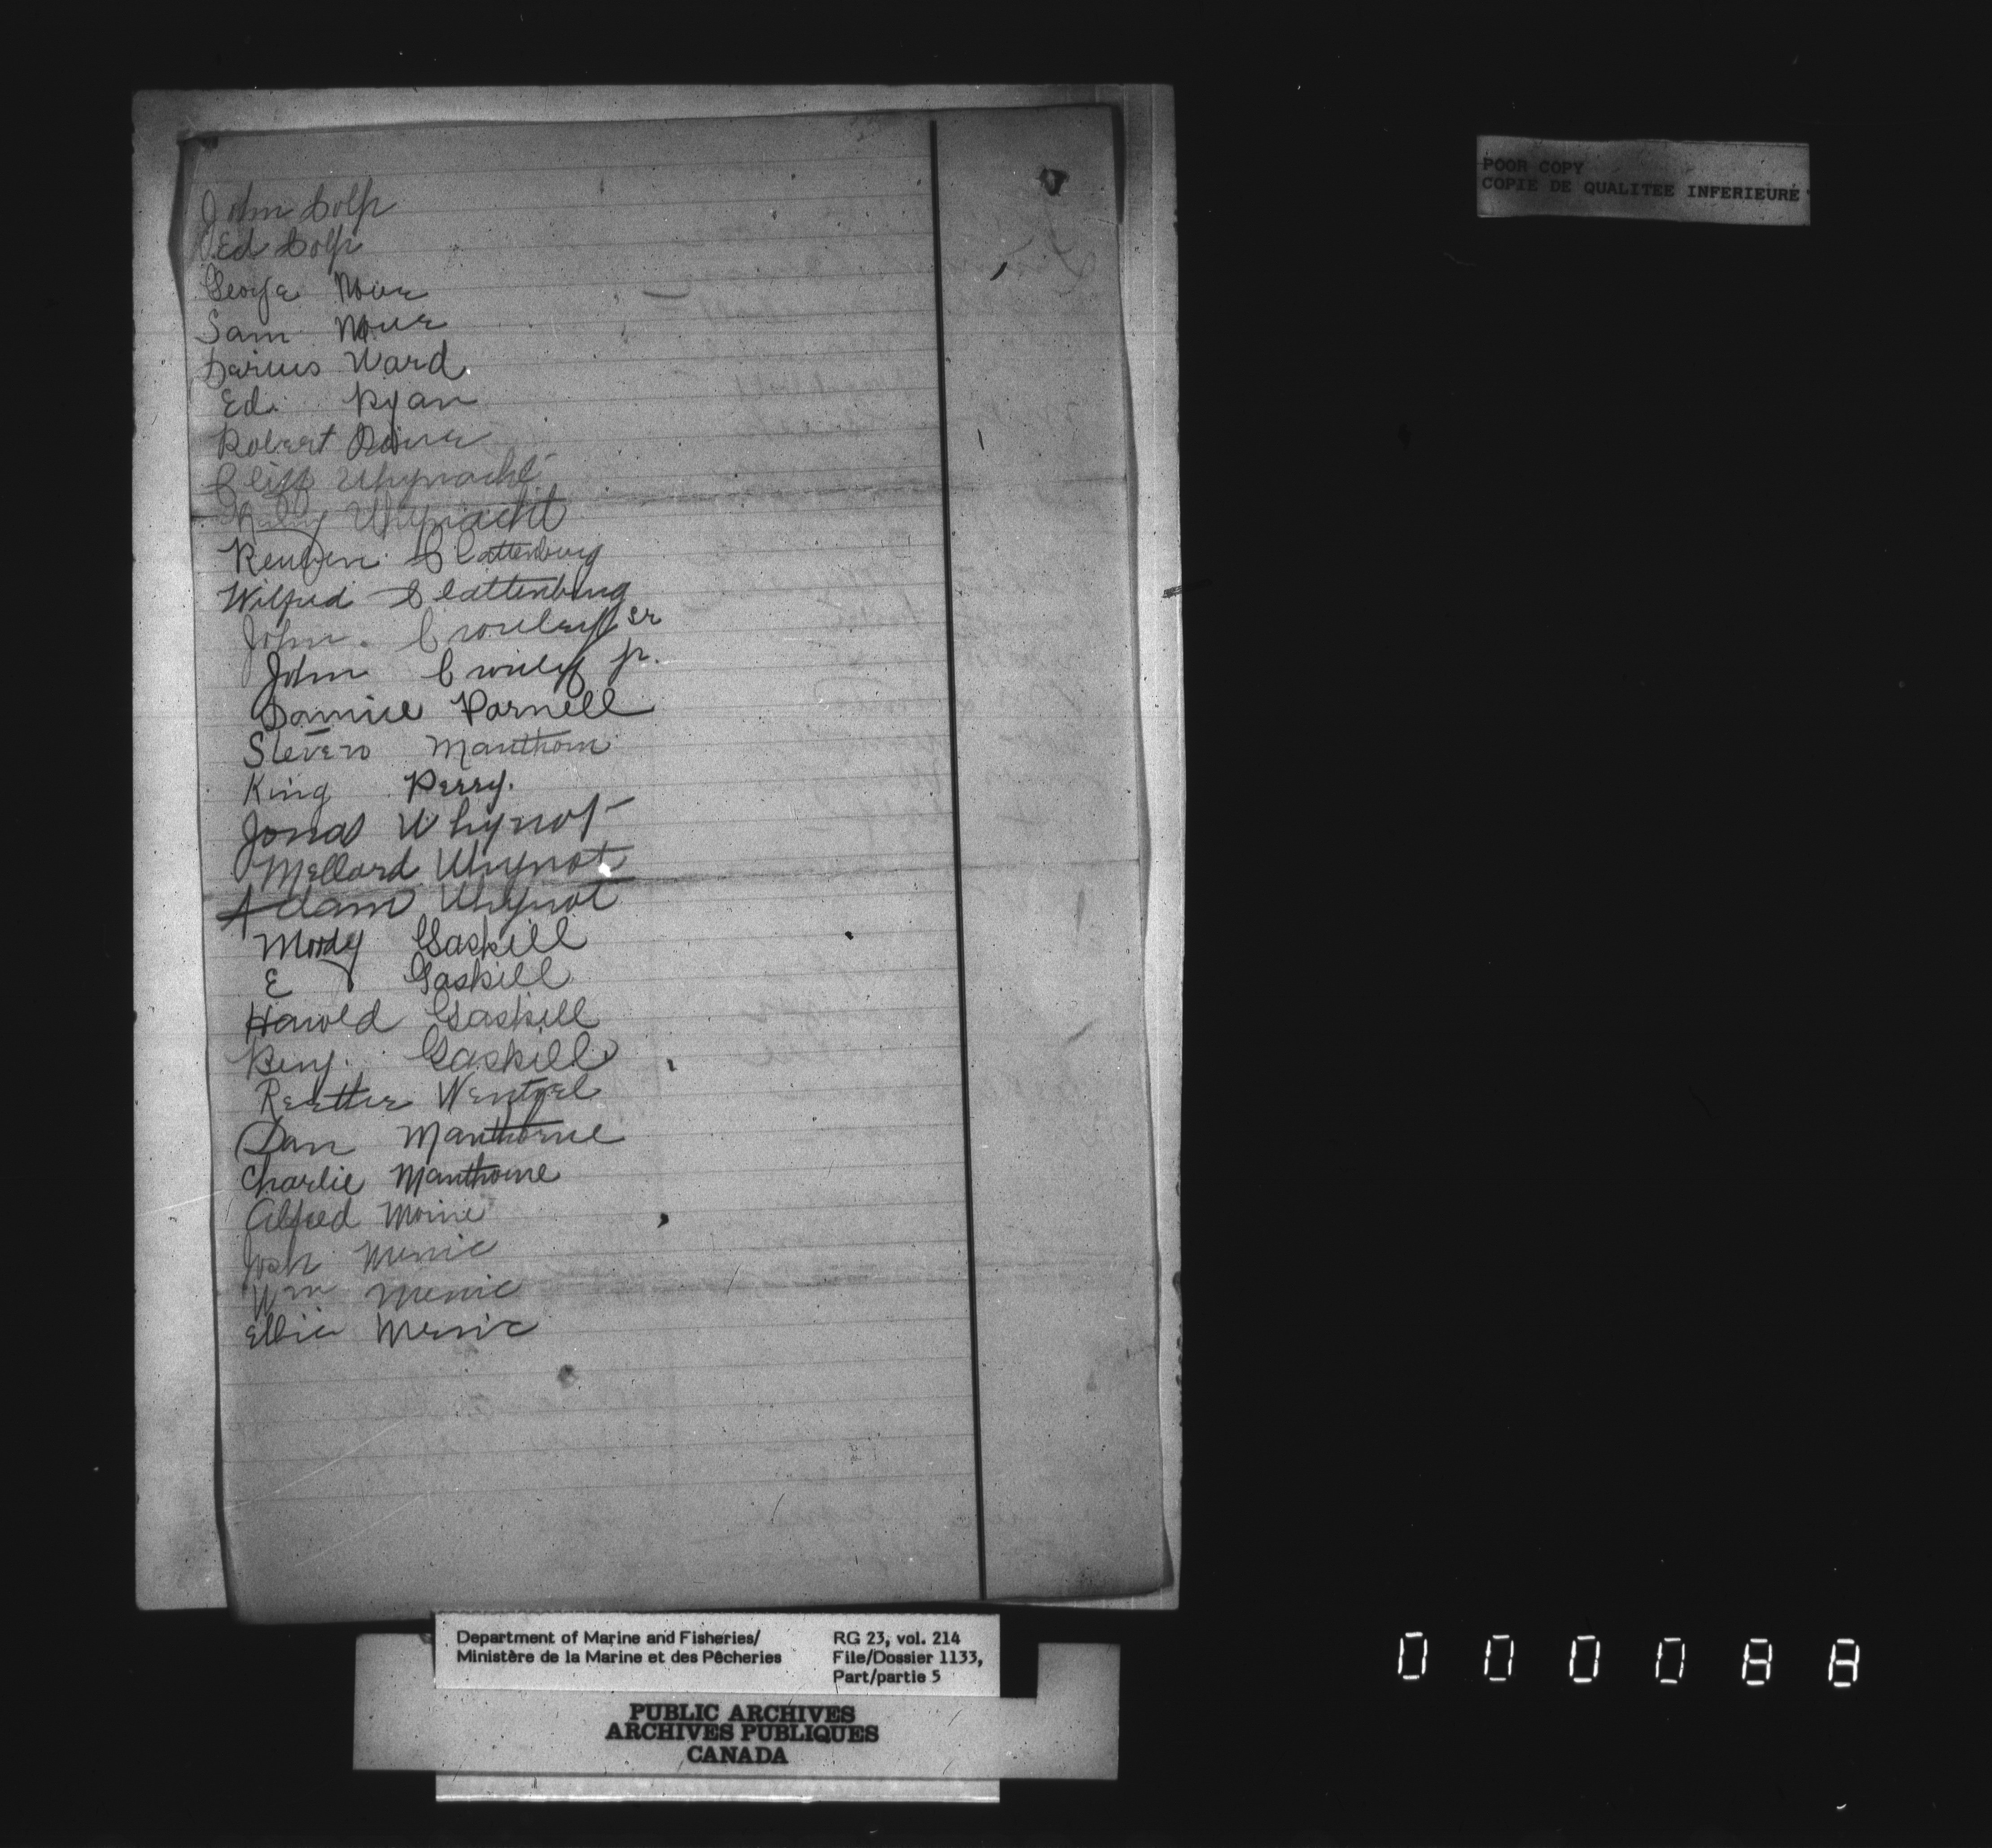 John Dolp
Ed Dolp
George
Sam
Darius Ward
Ed. Ryan
Robert
Cliff Whynacht
Whynacht
Reuben Clattenburg
Wilfred Clattenburg
John Crouley sr
John Crouley jr.
Daniel Parnell
Steven Manthorn
King Perry.
Jonas Whynot
Mellard Whynot
Adam Whynot
Moody Gaskill
E Gaskill
Harold Gaskill
Benj. Gaskill
Wentzel
Dan Manthorne
Charlie Manthorne
Alfred
Wm
POOR COPY
COPIE DE QUALITEE INFERIEURE
Department of Marine and Fisheries/
Ministère de la Marine et des Pêcheries
RG 23, vol. 214
File/Dossier 1133,
Part/partie 5
PUBLIC ARCHIVES
ARCHIVES PUBLIQUES
CANADA
000088